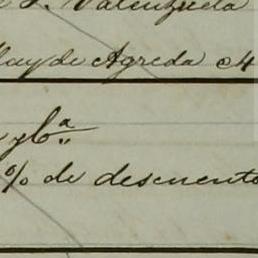 L. Valenzuela
de Agreda
y bª
% de descuento